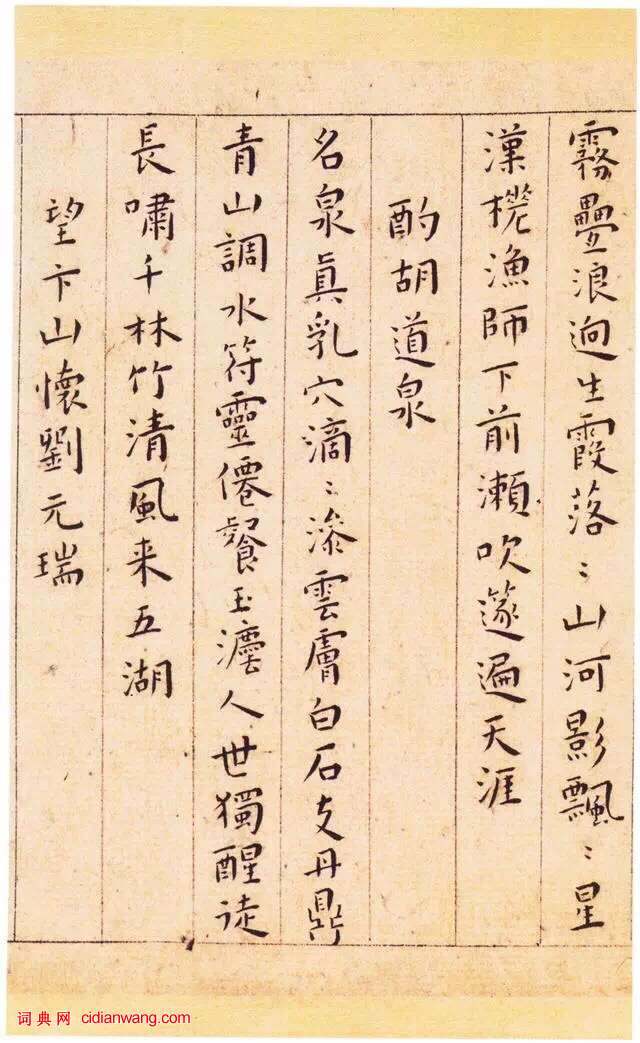 霧疊浪迥生霞落〻山河影飄〻星
漢槎漁師下前瀬吹篴遍天涯
酌胡道泉
名泉眞乳穴滴〻滲雲膚白石支丹鼎
青山調水符靈僊餐玉灋人世獨醒徒
長嘯千林竹清風来五湖
望卞山懷劉元瑞
词典网 cidianwang.com